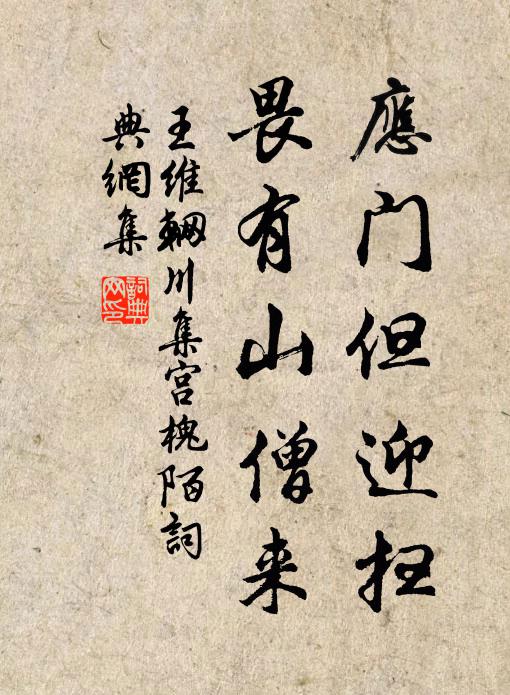 應门但迎扫
畏有山僧来
王维輞川集宫槐陌詞
典網集
詞典网印